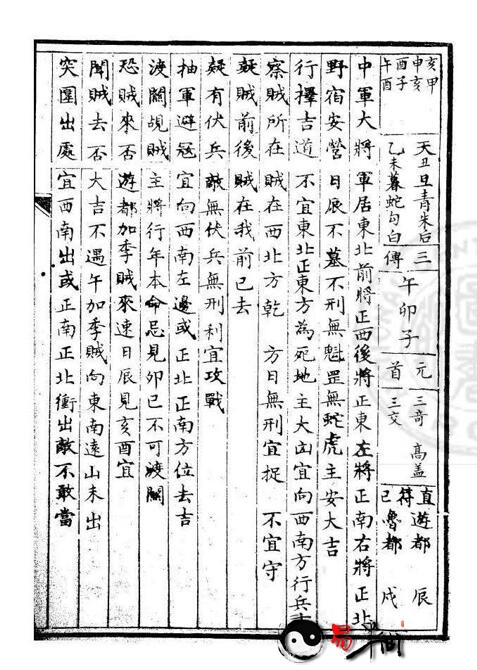 亥甲
申亥
酉子
午酉
天丑旦青朱后
乙未暮蛇勾白
三傳
午卯子
元首
三奇 高蓋
三交
直符巳
遊都 辰
魯都 戌
中軍大將 軍居東北前將正西後將正東左將正南右將正北
野宿安營 日辰不墓不刑無魁罡無蛇虎主安大吉
行擇吉道 不宜東北正東方為死地主大凶宜向西南方行兵吉
察賊所在 賊在西北方乾 方日無刑宜捉 不宜守
疑賊前後 賊在我前已去
疑有伏兵 敵無伏兵無刑利宜攻戰
抽軍避寇 宜向西南左邊或正北正南方位去吉
渡關覘賊 主將行年本命忌見卯巳不可渡關
恐賊來否 遊都加季賊來速日辰見亥酉宜
聞賊去否 大吉不遇午加季賊向東南遠山未出
突圍出處 宜西南出或正南正北衝出敵不敢當
易